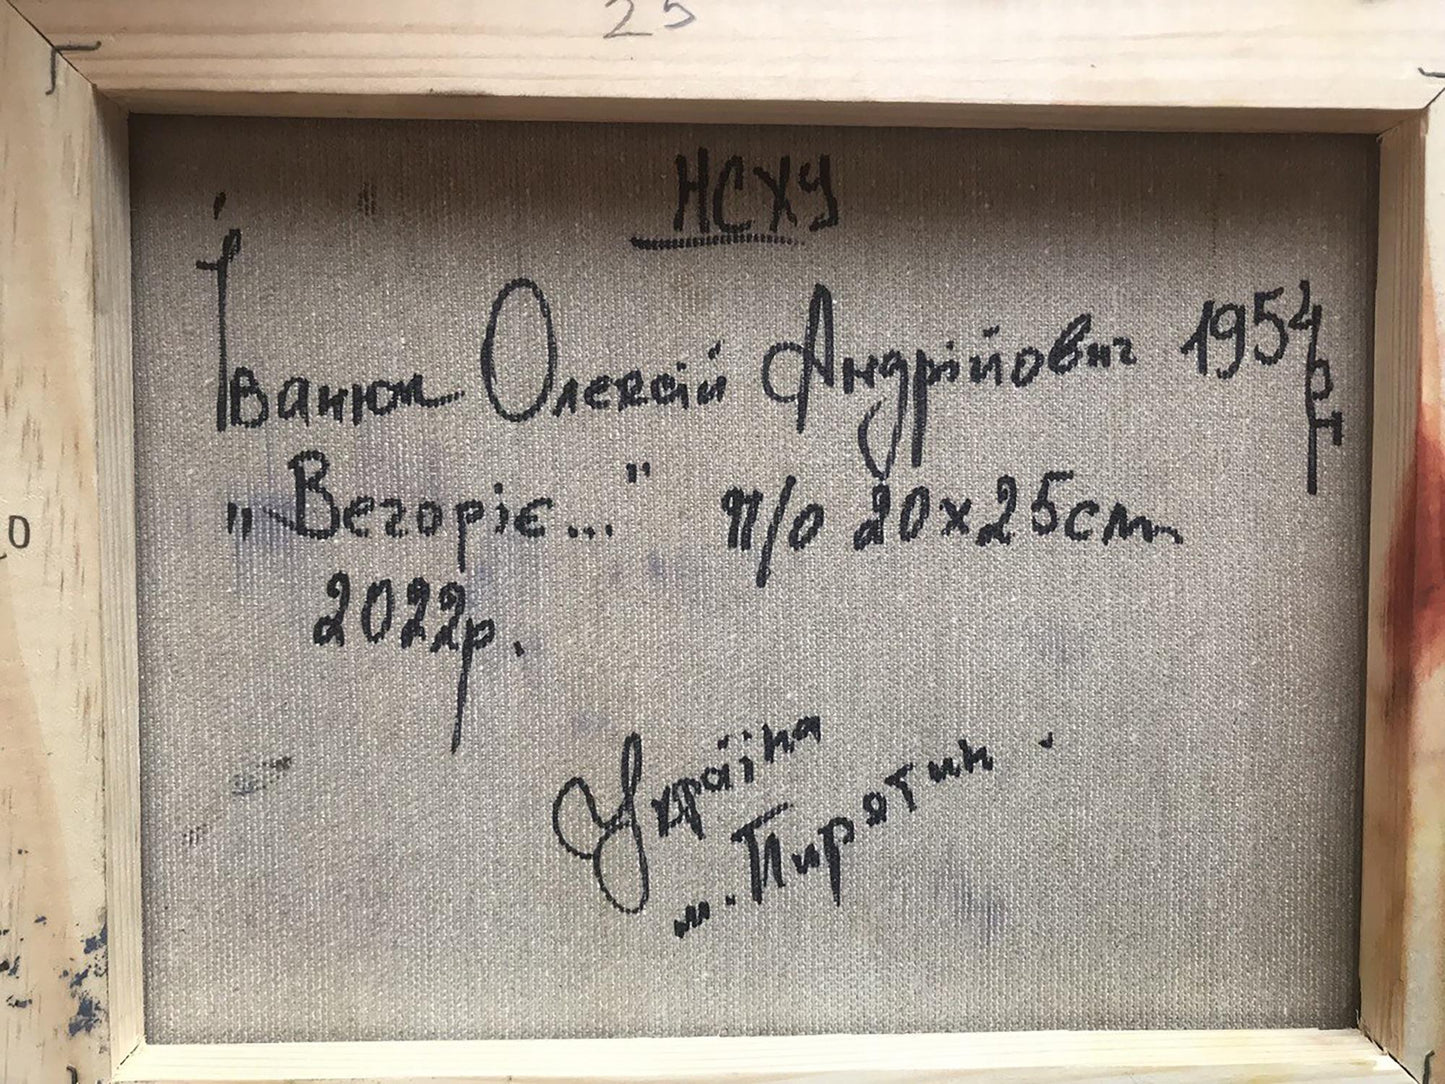 25
НСХУ
Іванюк Олексій Андрійович 1954 р н
„Вечоріє..." п/о 20х25см
0
2022р.
Україна
м. Пирятин.